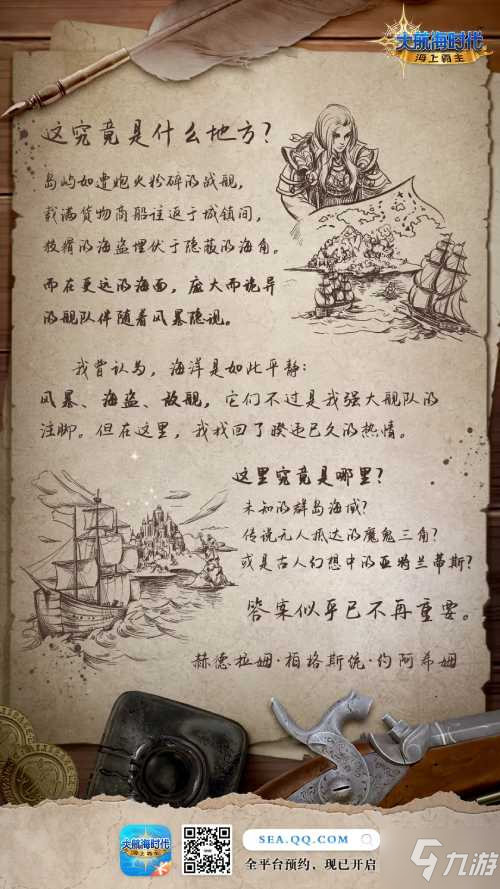 大航海时代
海上霸主
这究竟是什么地方？
岛屿如遭炮火粉碎的战舰，
载满货物商船往返于城镇间，
狡猾的海盗埋伏于隐蔽的海角。
而在更远的海面，庞大而诡异
的舰队伴随着风暴隐现。
我曾认为，海洋是如此平静：
风暴、海盗、敌舰，它们不过是我强大舰队的
注脚。但在这里，我找回了睽违已久的热情。
这里究竟是哪里？
未知的群岛海域？
传说无人抵达的魔鬼三角？
或是古人幻想中的亚特兰蒂斯？
答案似乎已不再重要。
赫德拉姆·柏格斯统·约阿希姆
大航海时代
海上霸主
SEA.QQ.COM
全平台预约，现已开启
九游